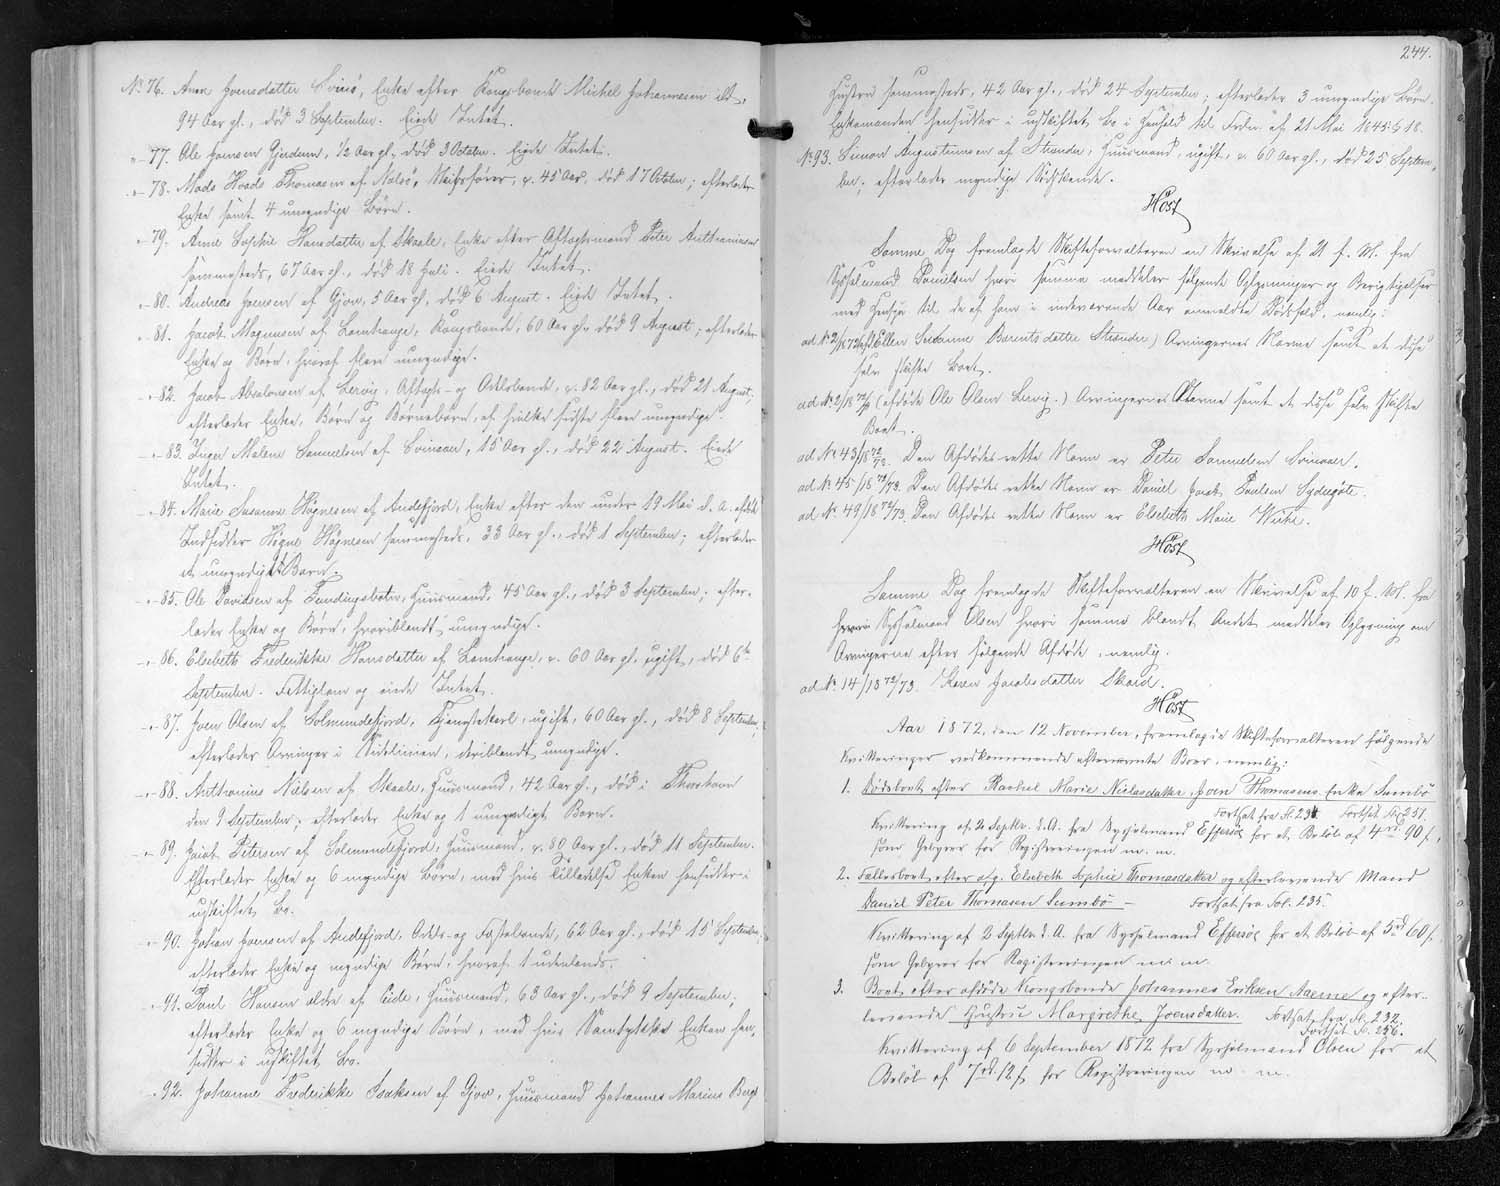 No 76. Anne Joensdatter Svinö, Enke efter Kongsbonde Michel Johannesen ibd.,
94 Aar gl., död 3 September. Eiede Intet.
" 77. Ole Joensen Gjerdum, 1/2 Aar gl., död 3 October. Eiede Intet.
" 78. Mads Hoads Thomasen af Nolsö, Skibsförer, c. 45 Aar, död 17 October; efterlader
Enke samt 4 umyndige Börn.
" 79. Anne Sophie Hansdatter af Skaale, Enke efter Aftægtsmand Peter Anthoniussen
sammesteds, 67 Aar gl., död 18 Juli. Eiede Intet.
" 80. Andreas Joensen af Gjov, 5 Aar gl., död 6 August. Eiede Intet.
" 81. Jacob Magnussen af Lamhauge, Kongsbonde, 60 Aar gl., död 9 August; efterlader
Enke og Börn, hvoraf flere umyndige.
" 82. Jacob Absalonsen af Lervig, Aftægts- og Odelsbonde, c. 82 Aar gl., död 21 August;
efterlader Enke, Börn og Börnebörn, af hvilke sidste flere umyndige.
" 83. Inger Malene Samuelsen af Svinaaer, 15 Aar gl., död 22 August. Eiede
Intet.
" 84. Marie Susanne Högnesen af Andefjord, Enke efter den under 19 Mai d. A. afdöde
Indsidder Högne Högnesen sammesteds, 33 Aar gl., död 1 September; efterlader
et umyndigt Barn.
" 85. Ole Davidsen af Fundingsbotn, Huusmand, 45 Aar gl., död 3 September; efter-
lader Enke og Börn, hvoriblandt umyndige.
" 86. Elsebeth Frederikke Hansdatter af Lamhauge, c. 60 Aar gl., ugift, död 6te
September. Fattiglem og eiede Intet.
" 87. Joen Olsen af Solmundefjord, Tjenestekarl, ugift, 60 Aar gl., död 8 September;
efterlader Arvinger i Sidelinien, deriblandt umyndige.
" 88. Anthonius Nielsen af Skaale, Huusmand, 42 Aar gl., död i Thorshavn
den 9 September; efterlader Enke og 1 umyndigt Barn.
" 89. Jacob Petersen af Solmundefjord, Huusmand, c. 80 Aar gl., död 11 September.
Efterlader Enke og 6 myndige Börn, med hvis Tilladelse Enken hensidder i
uskiftet Bo.
" 90. Johan Joensen af Andefjord, Odels- og Fæstebonde, 62 Aar gl., död 15 September;
efterlader Enke og myndige Börn, hvoraf 1 udenlands.
" 91. Poul Hansen ældre af Eide, Huusmand, 63 Aar gl., död 9 September;
efterlader Enke og 6 myndige Börn, med hvis Samtykke Enken hen-
sidder i uskiftet Bo.
" 92. Johanne Frederikke Isaksen af Gjov, Huusmand Johannes Marius Bergs
244.
Hustru sammesteds, 42 Aar gl., död 24 September; efterlader 3 umyndige Börn.
Enkemanden hensidder i uskiftet Bo i Henhold til Frdn. af 21 Mai 1845 § 18.
No 93. Simon Augustinussen af Strender, Huusmand, ugift, c. 60 Aar gl., död 25 Septem-
ber; efterlader myndige Södskende.
Höst
Samme Dag fremlagde Skifteforvalteren en Skrivelse af 21 f. M. fra
Sysselmand Danielsen hvori samme meddeler fölgende Oplysninger og Berigtigelser
med Hensyn til de af ham i indeværende Aar anmeldte Dödsfald, nemlig:
ad No 2/1872 (afd. Ellen Susanne Barentsdatter Strender) Arvingernes Navne samt at disse
selv skifte Boet.
ad No 2/18 72/73 (afdöde Ole Olsen Lervig.) Arvingernes Navne samt at disse selv skifte
Boet.
ad No 43/18 72/73. Den Afdödes rette Navn er Peter Samuelsen Svinaaer.
ad No 45/18 72/73. Den Afdödes rette Navn er Daniel Jacob Poulsen Sydregöte.
ad No. 49/18 72/73. Den Afdödes rette Navn er Elsebeth Marie Weihe.
Höst
Samme Dag fremlagde Skifteforvalteren en Skrivelse af 10 f. M. fra
hvori Sysselmand Olsen hvori samme blandt Andet meddeler Oplysning om
Arvingerne efter fölgende Afdöde, nemlig:
ad No. 14/18 72/73. Karen Jacobsdatter Skaard.
Höst
Aar 1872, den 12 November, fremlagde Skifteforvalteren fölgende
Kvitteringer vedkommende efternævnte Boer, nemlig:
1. Dödsboet efter Rachel Marie Niclasdatter, Joen Thomasens Enke Sumbö
Fortsat fra Fl. 231. Fortsæt Fl. 251.
Kvittering af 2 Septbr. d. A. fra Sysselmand Effersöe for et Belöb af 4 rd. 90 s.,
som Gebyrer for Registreringen m. m.
2. Fællesboet efter afg. Elsebeth Sophie Thomasdatter og efterlevende Mand
Daniel Peter Thomasen Sumbö — Fortsat fra Fol. 235.
Kvittering af 2 Septbr. d. A. fra Sysselmand Effersöe for et Belöb af 5 rd. 60 s.,
som Gebyrer for Registreringen m. m.
3. Boet efter afdöde Kongsbonde Johannes Eriksen Næme og efter-
levende Hustru Margrethe Joensdatter. Fortsat fra Fl. 232.
Fortsæt Fl. 256.
Kvittering af 6 September 1872 fra Sysselmand Olsen for et
Belöb af 7 rd. 12 s. for Registreringen m. m.